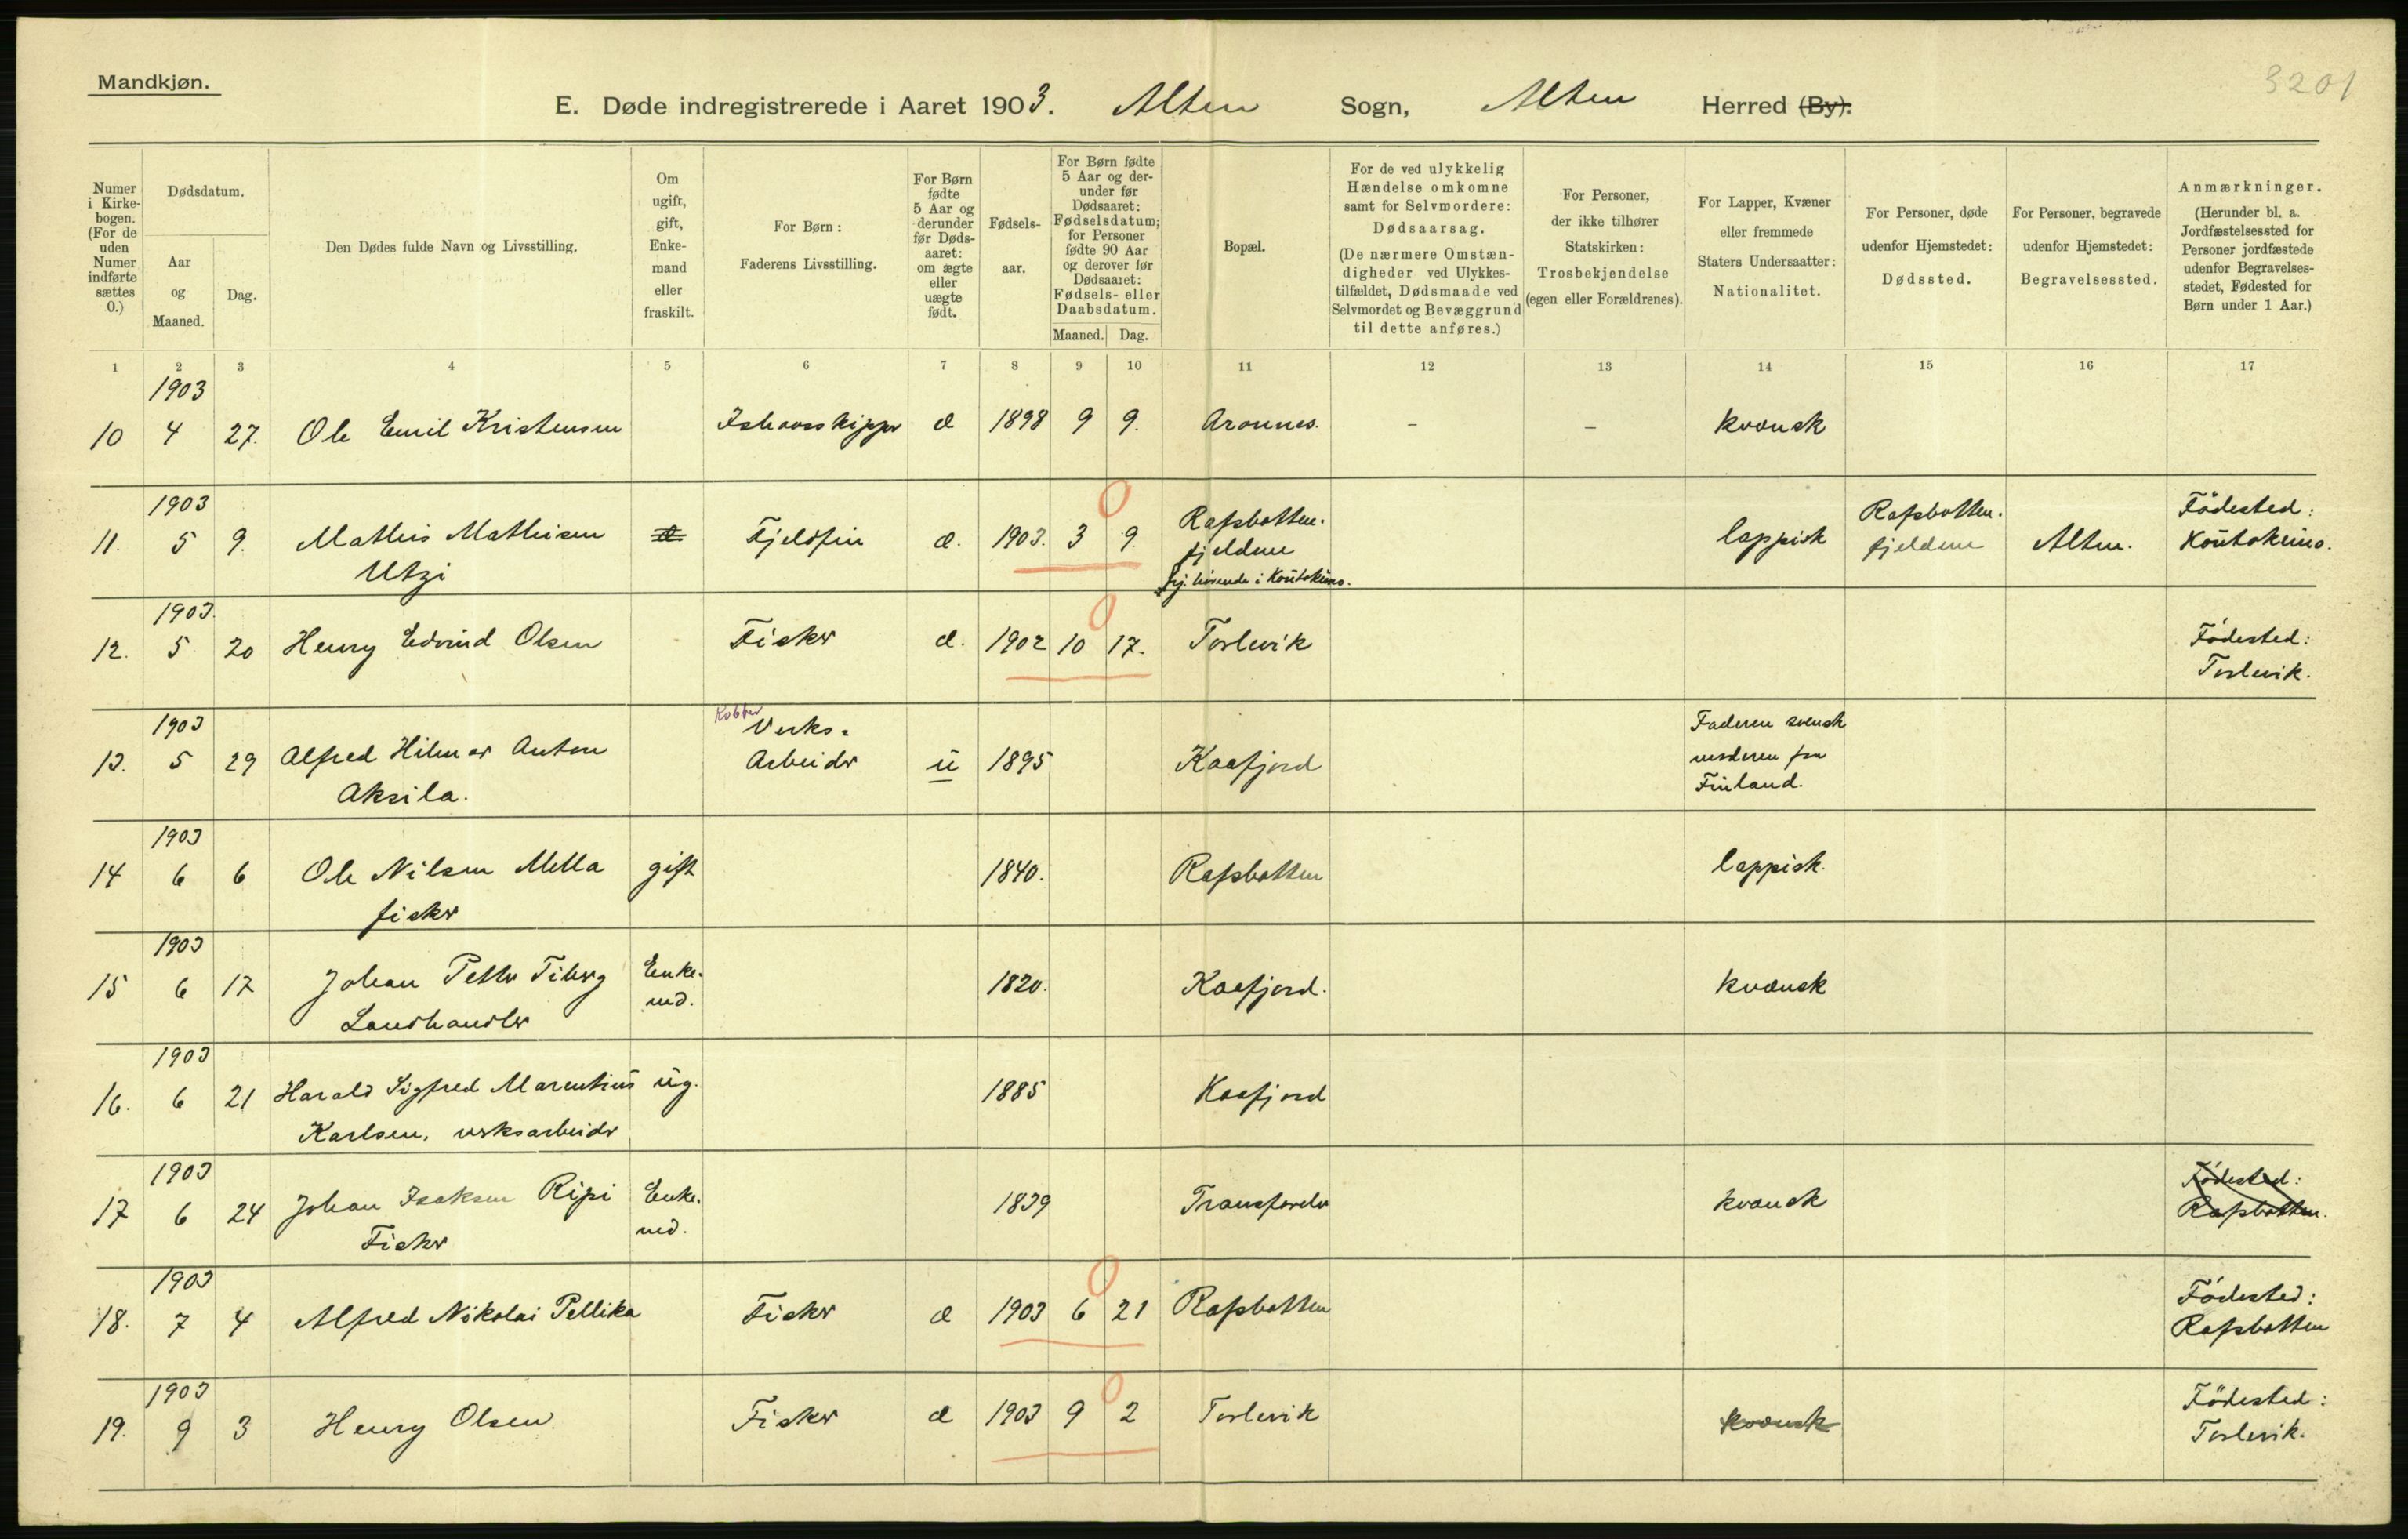 Mandkjøn.
3201
E. Døde indregistrerede i Aaret 1903. Alten Sogn, Alten Herred (By).
Numer i Kirkebogen. (For de uden Numer indførte sættes 0.)
Dødsdatum.
Aar og Maaned.
Dag.
Den Dødes fulde Navn og Livsstilling.
Om ugift, gift, Enkemand eller fraskilt.
For Børn: Faderens Livsstilling.
For Børn fødte 5 Aar og derunder før Dødsaaret: om ægte eller uægte født.
Fødselsaar.
For Børn fødte 5 Aar og derunder før Dødsaaret: Fødselsdatum; for Personer fødte 90 Aar og derover før Dødsaaret: Fødsels- eller Daabsdatum.
Maaned. Dag.
Bopæl.
For de ved ulykkelig Hændelse omkomne samt for Selvmordere: Dødsaarsag. (De nærmere Omstændigheder ved Ulykkestilfældet, Dødsmaade ved Selvmordet og Bevæggrund til dette anføres.)
For Personer, der ikke tilhører Statskirken: Trosbekjendelse (egen eller Forældrenes).
For Lapper, Kvæner eller fremmede Staters Undersaatter: Nationalitet.
For Personer, døde udenfor Hjemstedet: Dødssted.
For Personer, begravede udenfor Hjemstedet: Begravelsessted.
Anmærkninger. (Herunder bl. a. Jordfæstelsessted for Personer jordfæstede udenfor Begravelsesstedet, Fødested for Børn under 1 Aar.)
1 2 3 4 5 6 7 8 9 10 11 12 13 14 15 16 17
1903
10 4 27. Ole Emil Kristensen Ishavsskipper æ 1898 9 9. Aronnes. - - kvænsk
1903
11. 5 9. Mathis Mathisen Utzi æ Fjeldfin æ. 1903. 3 9. 0 Rafsbotten. fjeldene hj. hørende i Koutokeino. lappisk Rafsbotten. fjeldene Alten. Födested: Koutokeino.
1903.
12. 5 20 Henry Edvind Olsen Fisker æ. 1902 10 17. 0 Torlevik Födested: Torlevik.
1903
13. 5 29 Alfred Hilmar Anton Aksila. Kobber Verks= Arbeider u 1895 Kaafjord Faderen svensk moderen fra Finland.
1903
14 6 6 Ole Nilsen Mella fisker gift 1840. Rafsbotten lappisk.
1903
15 6 17 Johan Petter Tiberg Landhandler Enke. md. 1820. Kaafjord. kvænsk
1903
16. 6 21 Harald Sigfred Marentius Karlsen, verksarbeider ug. 1885 Kaafjord
1903
17 6 24 Johan Isaksen Ripi Fisker Enke. md. 1839 Transfarelv kvænsk Födested: Rafsbotten.
1903
18. 7 4 Alfred Nikolai Pellika Fisker æ 1903 6 21 0 Rafsbotten Födested: Rafsbotten
1903
19. 9 3 Henry Olsen Fisker æ 1903 9 2 0 Torlevik kvænsk Födested: Torlevik.